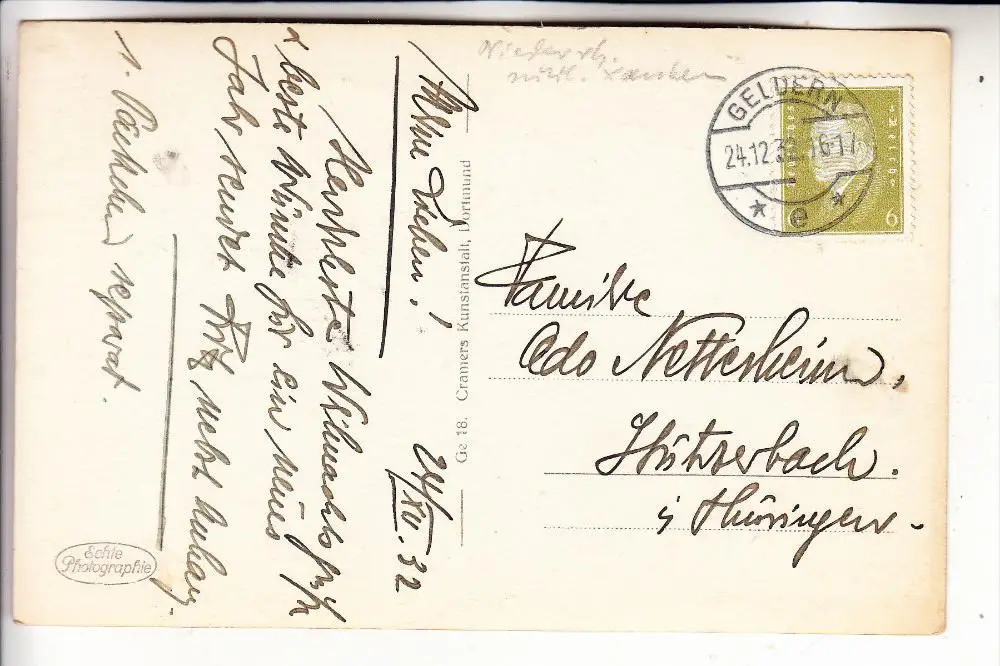 Niederrh.
GELDERN
24.12.32. 16-17
* e *
6
Meine Lieben! 24/XII. 32
Herzlichste Weihnachtsgrüße
u beste Wünsche für ein neues
Jahr sendet Fritz nebst Anhang.
1. Päckchen separat.
Ge 18. Cramers Kunstanstalt, Dortmund
Familie
Odo Netterheim,
Stützerbach.
i Thüringen.
Echte
Photographie